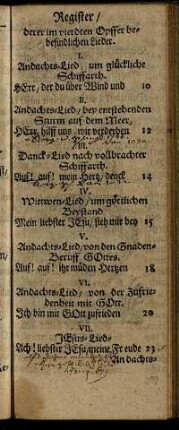 Register/
derer im vierdten Opffer be-
befindlichen Lieder.
I.
Andachts-Lied/ um glückliche
Schiffarth.
HErr, der du über Wind und 10
II.
Andachts-Lied/ bey entstehenden
Sturm auf dem Meer,
HErr hilff uns wir verderben 12
III.
Danck-Lied nach vollbrachter
Schiffarth.
Auf! auf! mein Hertz/ denck 14
IV.
Wittwen-Lied/ um göttlichen
Beystand
Mein liebster JEsu/ steh mir bey 15
V.
Andachts-Lied/ von den Gnaden-
Beruff GOttes.
Auf! auf! ihr müden Hertzen 18
VI.
Andachts-Lied/ von der Zufrie-
denheit mit GOtt.
Ich bin mit GOtt zufrieden 20
VII.
JEsus-Lied-
Ach! liebster JEsu/ meine Freude 23
Andachts-